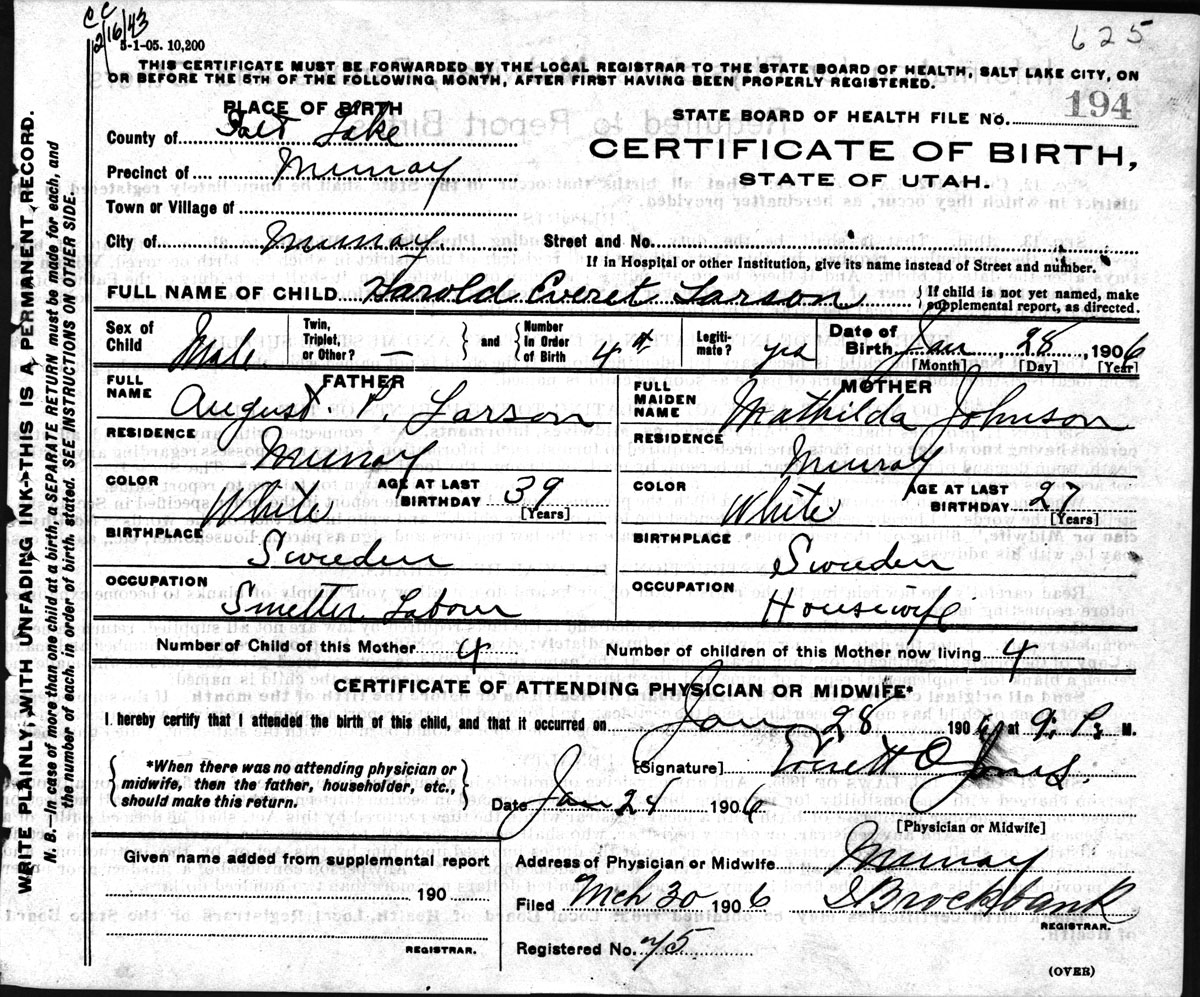 CC
12/16/43
5-1-05. 10,200
625
THIS CERTIFICATE MUST BE FORWARDED BY THE LOCAL REGISTRAR TO THE STATE BOARD OF HEALTH, SALT LAKE CITY, ON
OR BEFORE THE 5TH OF THE FOLLOWING MONTH, AFTER FIRST HAVING BEEN PROPERLY REGISTERED.
PLACE OF BIRTH
STATE BOARD OF HEALTH FILE NO. 194
County of Salt Lake
CERTIFICATE OF BIRTH,
Precinct of Murray
STATE OF UTAH.
Town or Village of
City of Murray Street and No.
If in Hospital or other Institution, give its name instead of Street and number.
FULL NAME OF CHILD Harold Everet Larson { If child is not yet named, make supplemental report, as directed.
Sex of Child Male Twin, Triplet, or Other? — } and { Number in Order of Birth 4th Legiti-mate? yes Date of Birth Jan 28, 1906
[Month] [Day] [Year]
FATHER MOTHER
FULL NAME August P. Larson FULL MAIDEN NAME Mathilda Johnson
RESIDENCE Murray RESIDENCE Murray
COLOR White AGE AT LAST BIRTHDAY 39 [Years] COLOR White AGE AT LAST BIRTHDAY 27 [Years]
BIRTHPLACE Sweden BIRTHPLACE Sweden
OCCUPATION Smelter Labour OCCUPATION Housewife
Number of Child of this Mother 4 Number of children of this Mother now living 4
CERTIFICATE OF ATTENDING PHYSICIAN OR MIDWIFE*
I hereby certify that I attended the birth of this child, and that it occurred on Jan 28 1906, at 9. P. M.
{ *When there was no attending physician or midwife, then the father, householder, etc., should make this return. }
[Signature] Everett O Jones
Date Jan 24 1906
[Physician or Midwife]
Given name added from supplemental report
Address of Physician or Midwife Murray
190
Filed Mch 30 1906 Brocksbank
REGISTRAR.
REGISTRAR.
Registered No. 45
(OVER)
WRITE PLAINLY, WITH UNFADING INK—THIS IS A PERMANENT RECORD.
N. B.—In case of more than one child at a birth, a SEPARATE RETURN must be made for each, and
the number of each, in order of birth, stated. SEE INSTRUCTIONS ON OTHER SIDE.